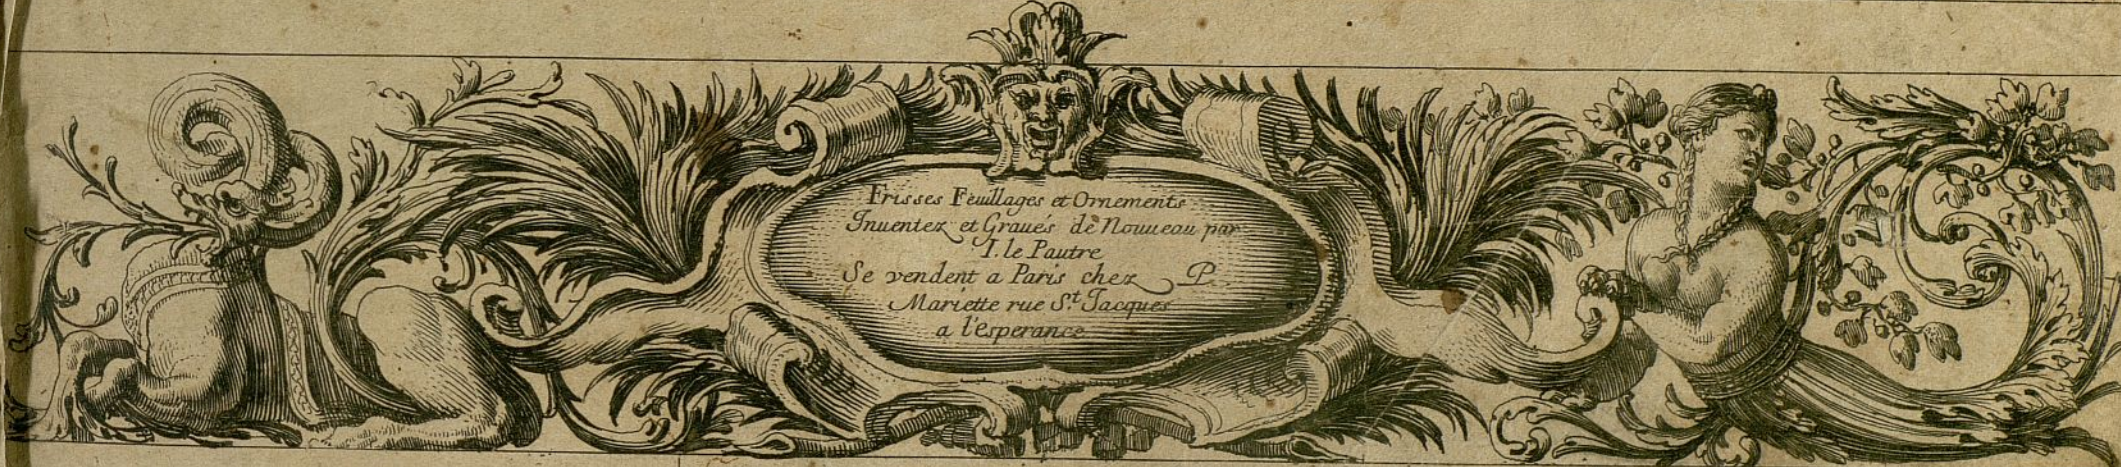 Frisses Feuillages et Ornements
Inuentez et Graués de Nouueau par
I. le Pautre
Se vendent a Paris chez P.
Mariette rue St. Jacques
a l'Esperance